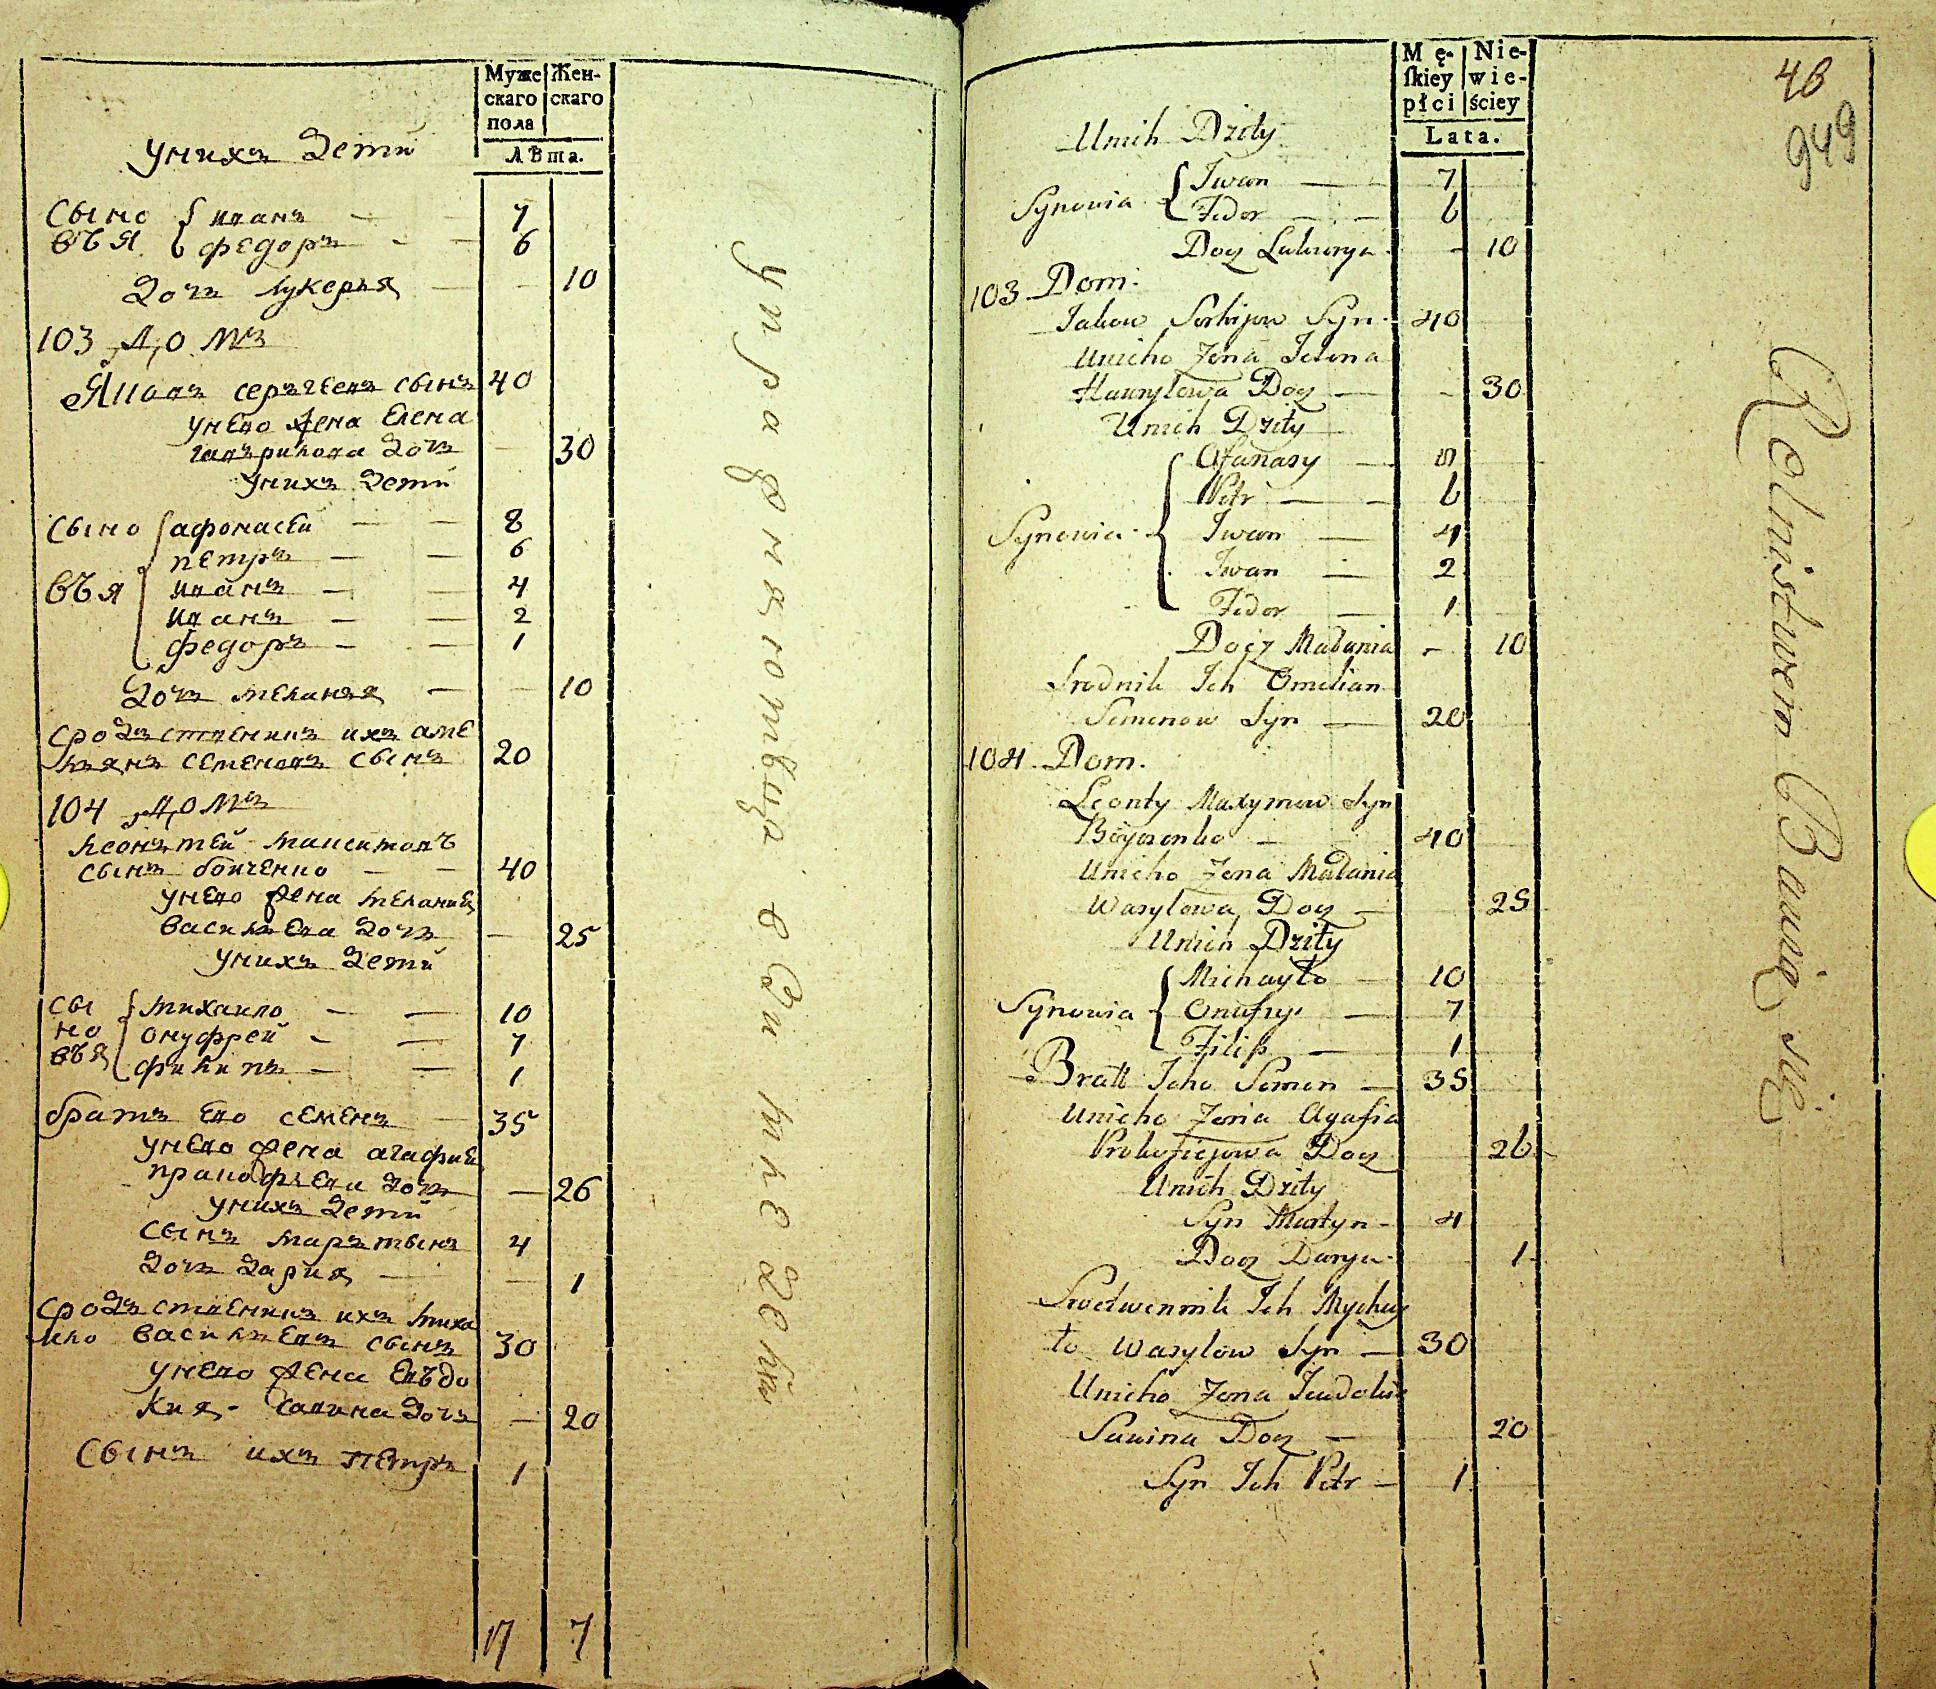 Муже
скаго
пола
Жен-
скаго
Лѣта.
унихъ дети
Сыно
въя
иванъ 7
федоръ 6
дочъ лукерья 10
103 домъ
Яковъ серъгѣевъ сынъ 40
унево жена Елена
гавърилова дочъ 30
унихъ дети
сыно
въя
афонасеи 8
петръ 6
иванъ 4
иванъ 2
федоръ 1
дочъ меланья 10
сродъственникъ ихъ аме
льянъ семеновъ сынъ 20
104 домъ
леонътей максимовъ
сынъ боиченко 40
унево жена мелания
васильева дочъ 25
унихъ дети
сы
но
въя
михаило 10
онуфреи 7
филипъ 1
братъ ево семенъ 35
унево жена агафия
дочъ 26
унихъ дети
сынъ марътынъ 4
дочъ дария 1
сродъственникъ ихъ миха
ило васильевъ сынъ 30
унево жена евъдо
кия савина дочъ 20
сынъ ихъ петръ 1
17 7
упражняютъца в
Mę-
ſkiey
płci
Nie-
wie-
ściey
Lata.
48
949
Unich Dzity
Synowia
Iwan 7
Fedor 6
Docz 10
103 Dom.
Jakow Syn 40
Unieho Zona Jelena
Hawryłowa Docz 30
Unich Dzity
Synowia
Afanasy 8
Petr 6
Iwan 4
Iwan 2
Fedor 1
Docz Małania 10
Srodnik Ich Omelian
Semenow Syn 20
104 Dom.
Leonty Maxymow Syn
40
Unieho Zona Małania
Wasylowa Docz 25
Unich Dzity
Synowia
Michayło 10
Onufry 7
Filip 1
Bratt Jeho Semen 35
Unieho Zona Agafia
Prokofiejowa Docz 26
Unich Dzity
Syn Martyn 4
Docz Darya 1
Ich Mychay
ło Wasylow Syn 30
Unieho Zona
Sawina Docz 20
Syn Ich Petr 1
Rolnistwem Bawią się